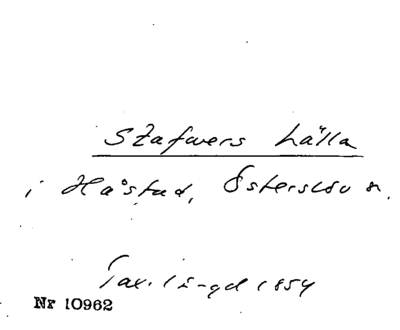 Stafvers hälla
i Håstad, Österslöv sn.
Tax. längd 1854
Nr 10962